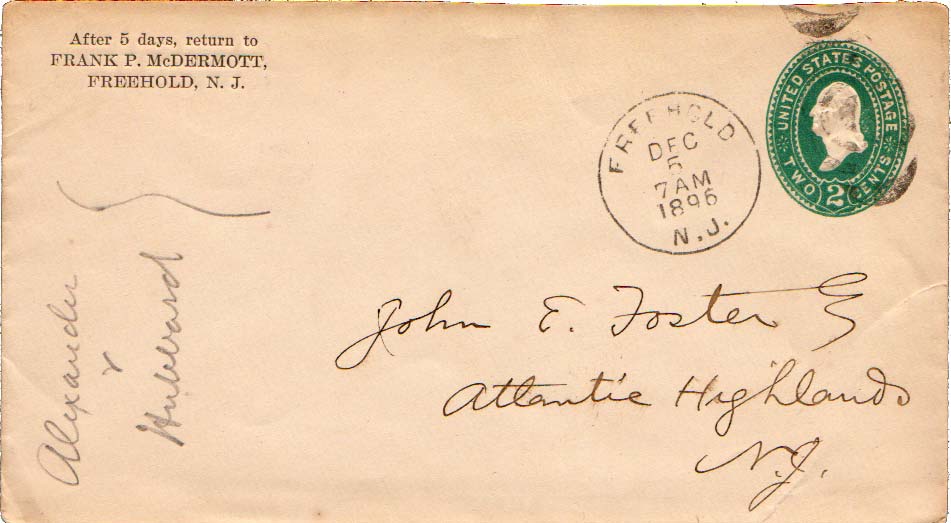 After 5 days, return to
FRANK P. McDERMOTT,
FREEHOLD, N. J.
FREEHOLD
DEC
5
7AM
1896
N.J.
UNITED STATES POSTAGE
TWO 2 CENTS
John E. Foster
Atlantic Highlands
N.J.
Alexander